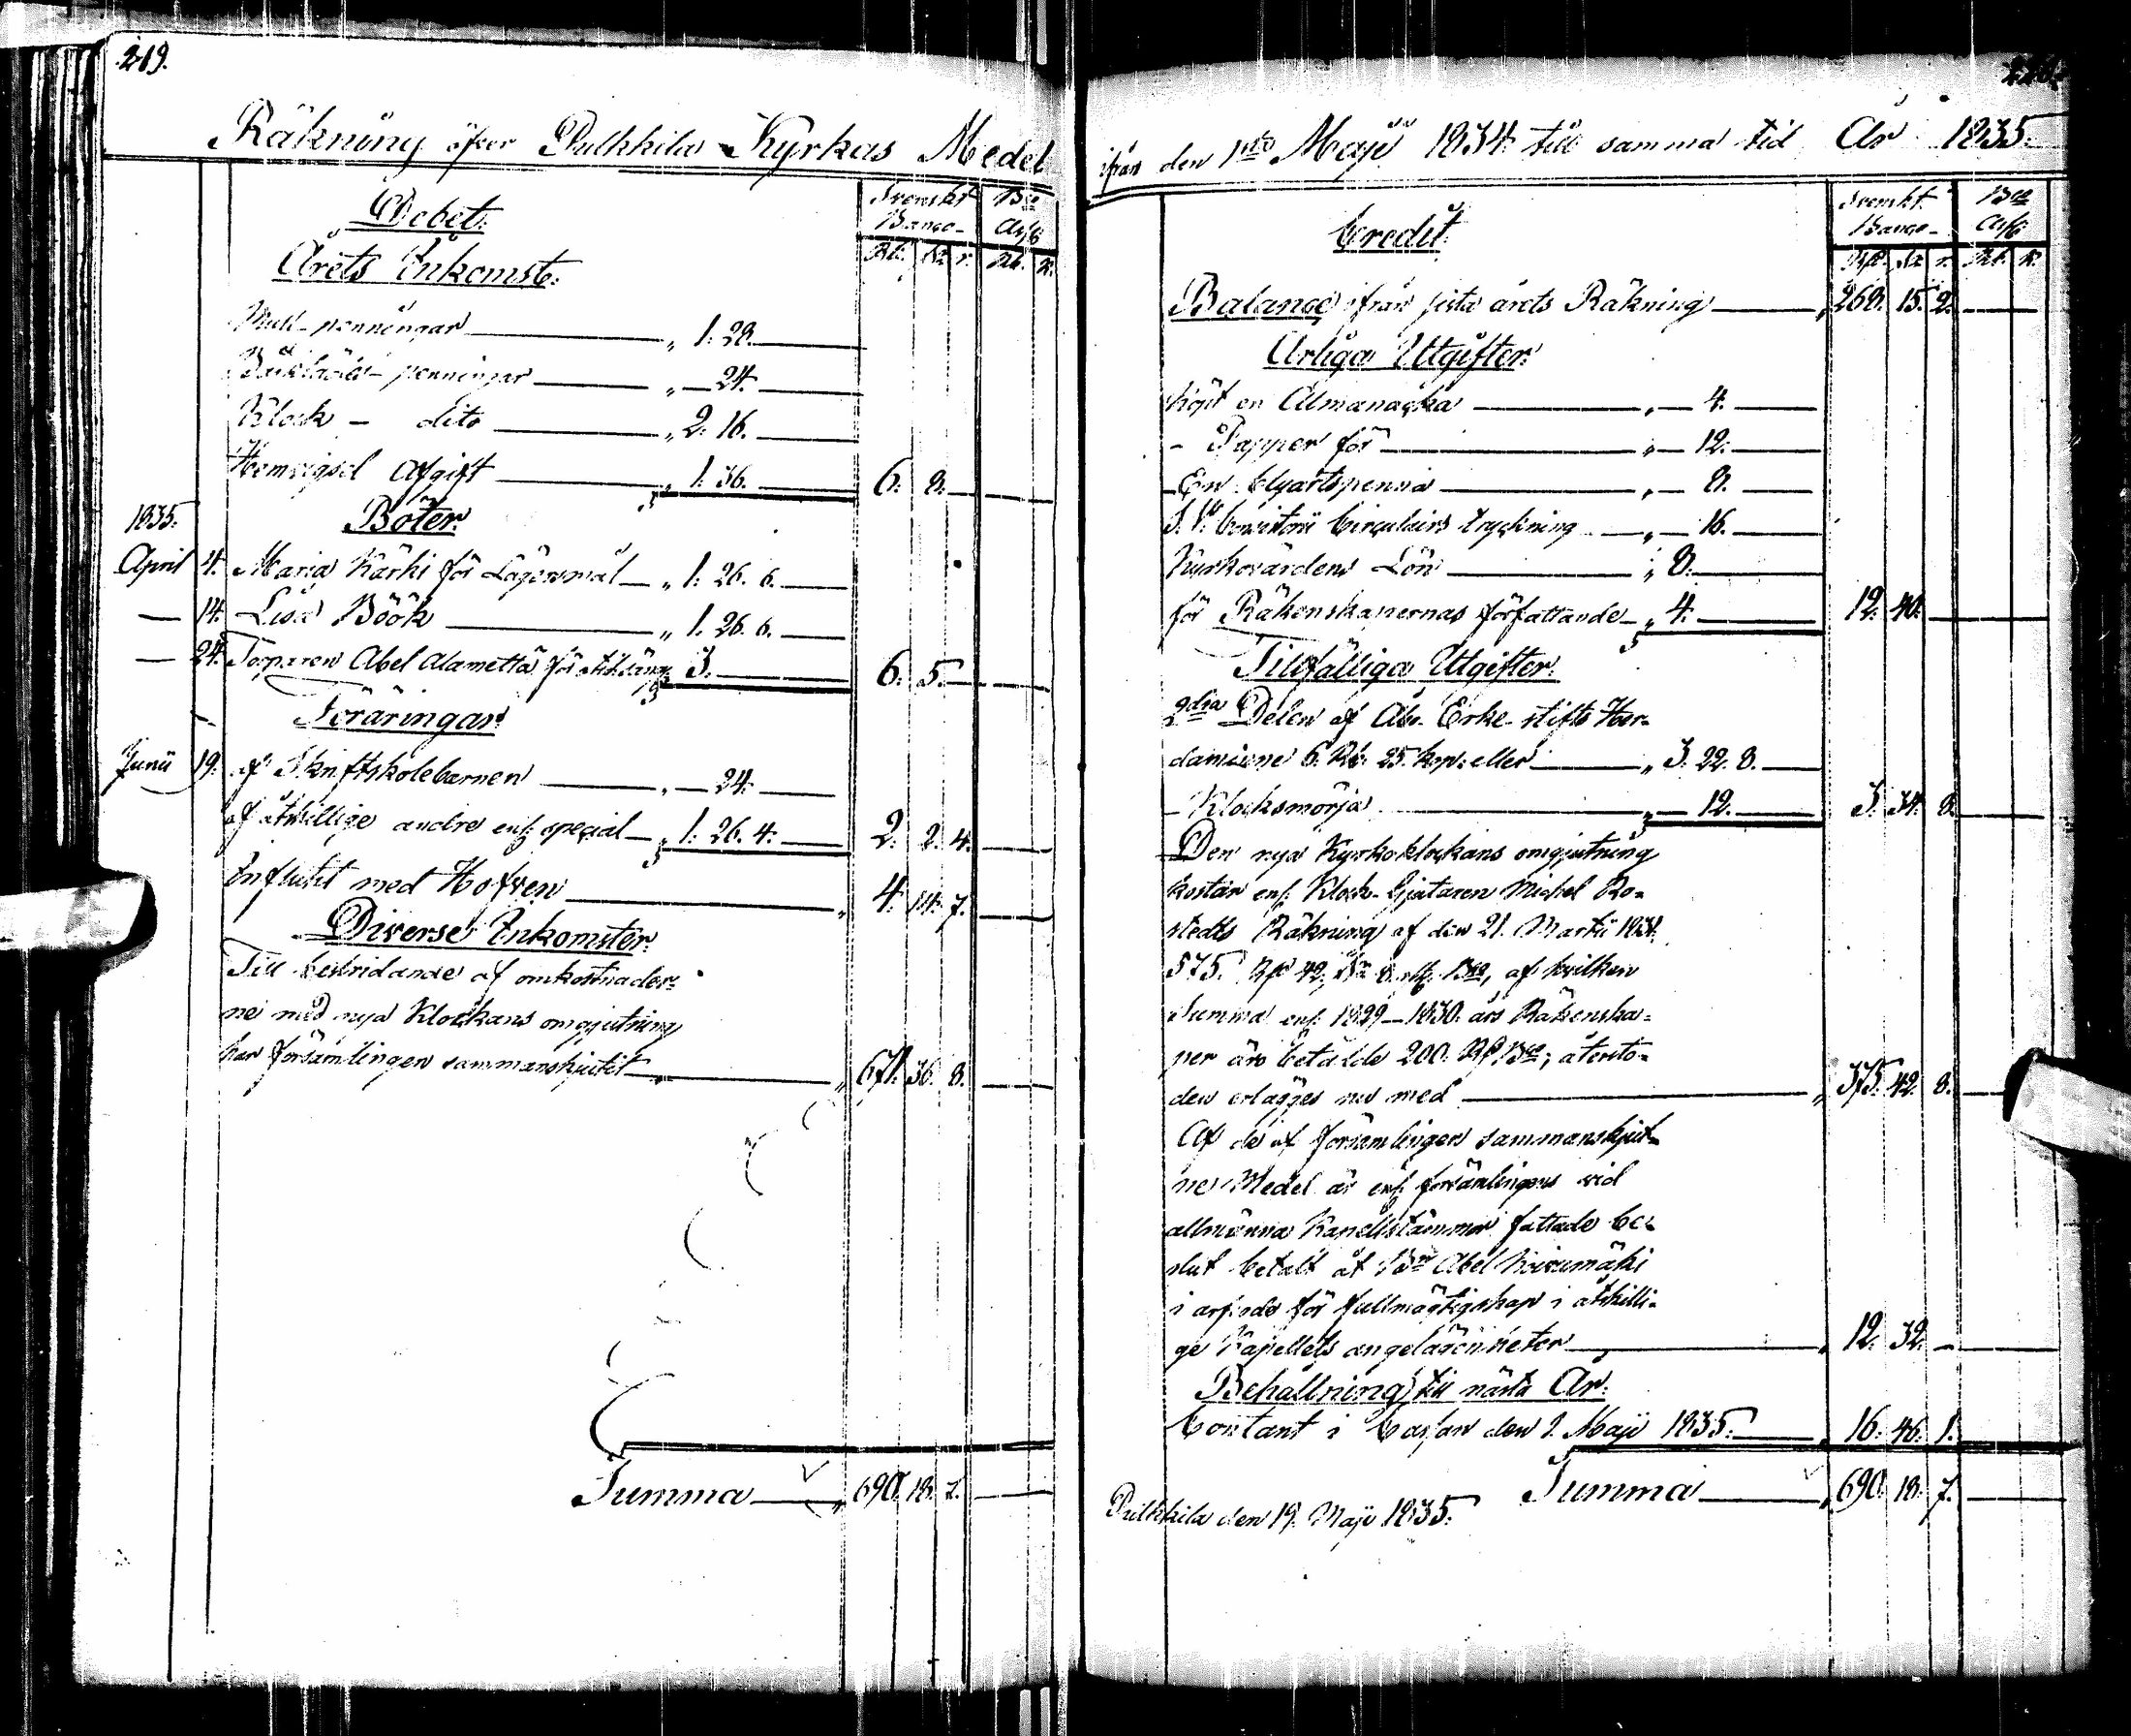 219.
Räkning öfver Pulkkila Kyrkas Medel
Debet.
Svenskt Banco Bco Ass.
Rd. sk. r. Rb. k.
Årets Inkomst.
Mull-penningar „ 1. 28.
Bårkläde-penningar „ — 24.
Klock - dito „ 2. 16.
Hemvigsel Afgift „ 1. 36. 6. 8.
1835. Böter
April 4. Maria Kärki för Lägersmål „ 1. 26. 6.
— 14. Lisa Böök „ 1. 26. 6.
— 24. Torparen Abel Alametta för 3. 6. 5.
Föräringar
Junii 19. af Skriftskolebarnen „ — 24.
af åtskillige andre enl. special „ 1. 26. 4. 2. 2. 4.
Influtit med Hofven „ 4. 14. 7.
Diverse Inkomster.
Till bestridande af omkostnader=
ne med nya Klockans omgjutning
har församlingen sammanskjutit „ 671. 36. 8.
Summa „ 690. 18. 7.
220.
ifrån den 1sta Maji 1834 till samma tid År 1835.
Credit.
Svenskt Banco Bco Ass.
Rd. sk. r. Rb. k.
Balance ifrån sista årets Räkning „ 268. 15. 2.
Årliga Utgifter.
Köpt en Almanacka „ — 4.
- Papper för „ — 12.
En qvartspenna „ — 8.
Consitorii Circulairs tryckning „ — 16.
Kyrkovärdens Lön „ 8.
för Räkenskapernas författande „ 4. 12. 40.
Tillfälliga Utgifter.
2dra Delen af Åbo Erke-stifts Her-
daminne 6. Rb. 25. kop. eller „ 3. 22. 8.
- Klocksmörja „ — 12. 3. 34. 8.
Den nya Kyrkoklockans omgjutning
kostar enl. Klock-Gjutaren Michel Ro=
stedts Räkning af den 21. Martii 1831.
575. Rd 42. sk 8. Bco, af hvilken
Summa enl. 1829—1830. års Räkenska=
per äro betalde 200. Rd Bco; återsto=
den erlägges nu med „ 375. 42. 8.
Af de af församlingen sammanskjut=
ne Medel är enl. församlingens vid
allmänna Kapellstämmor fattade be=
slut betalt åt Abel
i arfvode för fullmägtigskap i åtskilli=
ge Kapellets angelägenheter „ 12. 32. —
Behållning till nästa År.
Contant i Cassan den 1. Maji 1835. 16. 46. 1.
Summa „ 690. 18. 7.
Pulkkila den 19. Maji 1835.